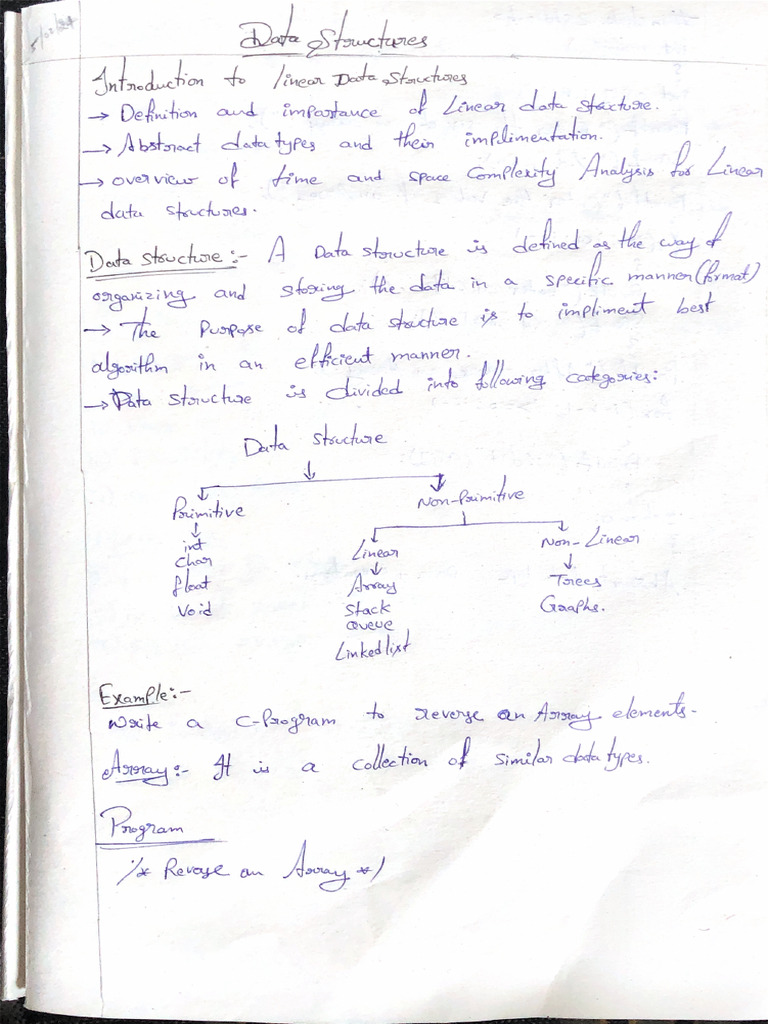 5/02/24
Data Structures
Introduction to linear Data Structures
→ Definition and importance of Linear data structure.
→ Abstract data types and their implimentation.
→ overview of time and space Complexity Analysis for Linear
data structures.
Data structure :- A Data structure is defined as the way of
organizing and storing the data in a specific manner (format)
→ The Purpose of data structure is to impliment best
algorithm in an efficient manner.
→ Data structure is divided into following categories:
Data structure
Primitive Non-Primitive
Linear Non-Linear
int Array Trees
char Stack Graphs.
float Queue
void Linkedlist
Example:-
Write a C-Program to reverse an Array elements.
Array:- It is a collection of similar data types.
Program
/* Reverse an Array */